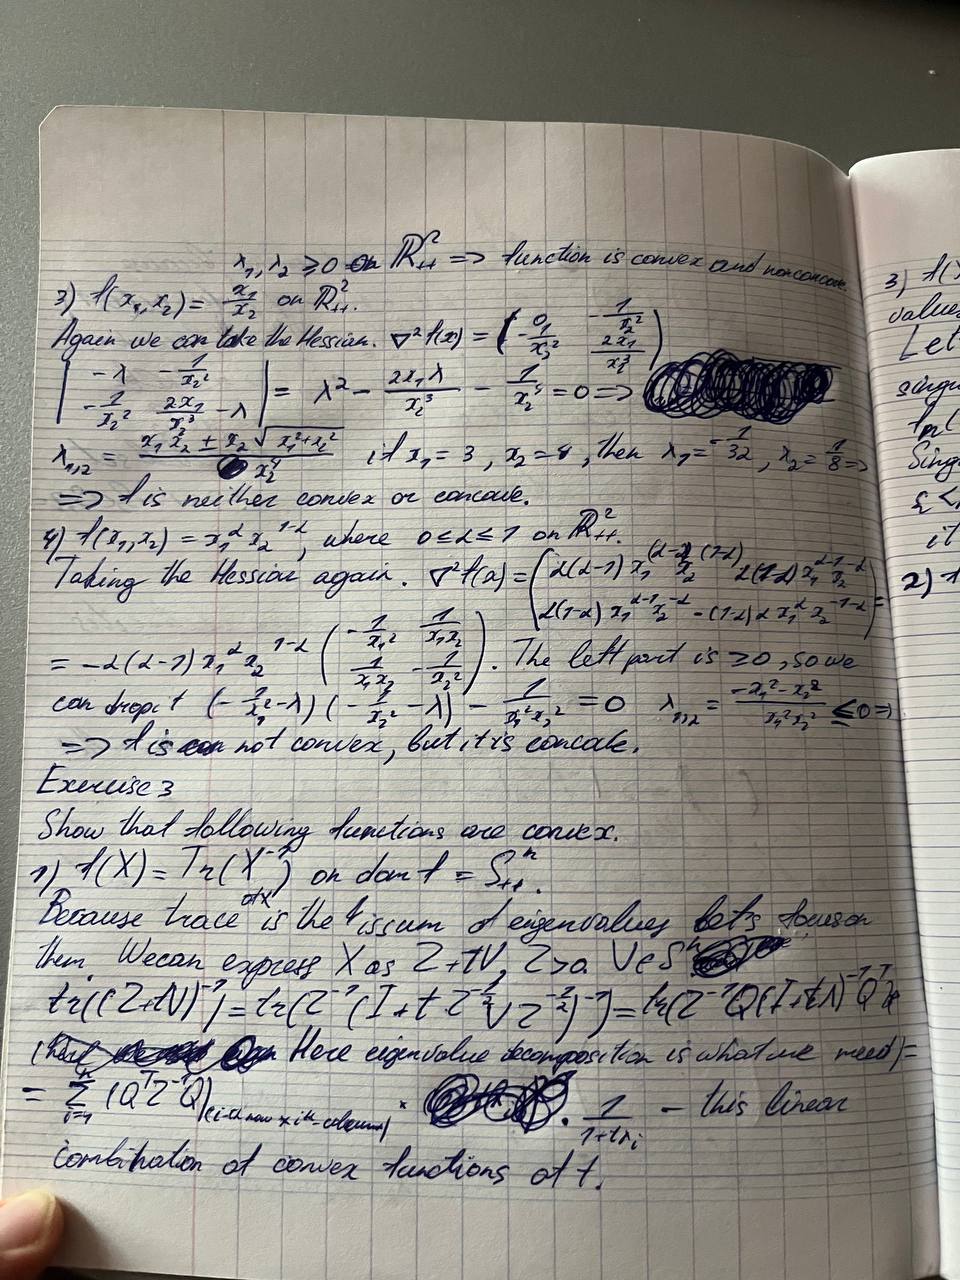 λ₁, λ₂ ⩾ 0 on ℝ²₊₊ => function is convex and nonconcave
3) f(x₁, x₂) = x₁/x₂ on ℝ²₊₊.
Again we can take the Hessian. ∇²f(x) = ( 0 -1/x₂² ; -1/x₂² 2x₁/x₂³ )
| -λ -1/x₂² ; -1/x₂² 2x₁/x₂³ - λ | = λ² - 2x₁λ/x₂³ - 1/x₂⁴ = 0 =>
λ₁,₂ = (x₁x₂ ± x₂√(x₁²+x₂²))/x₂⁴ if x₁ = 3, x₂ = 4, then λ₁ = -1/32, λ₂ = 1/8 =>
=> f is neither convex or concave.
4) f(x₁, x₂) = x₁^α x₂^(1-α), where 0 ≤ α ≤ 1 on ℝ²₊₊.
Taking the Hessian again. ∇²f(x) = ( α(α-1) x₁^(α-2) x₂^(1-α) α(1-α) x₁^(α-1) x₂^(-α) ; α(1-α) x₁^(α-1) x₂^(-α) -(1-α)α x₁^α x₂^(-1-α) ) =
= -α(α-1) x₁^α x₂^(1-α) ( -1/x₁² 1/x₁x₂ ; 1/x₁x₂ -1/x₂² ). The left part is ⩾ 0, so we
can drop it (-1/x₁² - λ)(-1/x₂² - λ) - 1/x₁²x₂² = 0 λ₁,₂ = (-x₁² - x₂²)/x₁²x₂² ≤ 0 =>
=> f is not convex, but it is concave.
Exercise 3
Show that following functions are convex.
1) f(X) = Tr(X⁻¹) on dom f = S₊₊ⁿ.
Because trace of X is the is sum of eigenvalues let's focus on
them. We can express X as Z + tV, Z > 0. V ∈ Sⁿ
tr((Z+tV)⁻¹) = tr(Z⁻¹(I + t Z^(-1/2) V Z^(-1/2))⁻¹) = tr(Z⁻¹Q(I+tΛ)⁻¹Qᵀ) =
(Here eigenvalue decomposition is what we need) =
= Σ_(i=1)^n (QᵀZ⁻¹Q)_(i-th row × i-th column) · 1/(1+tλᵢ) - this linear
combination of convex functions of t.
3) f(
values
Let
singu
Singu
it
2) f